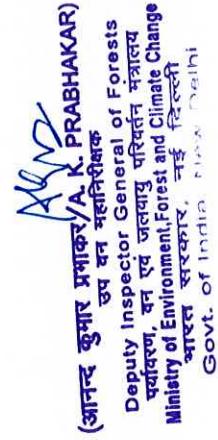 (आनन्द कुमार प्रभाकर/A. K. PRABHAKAR)
उप वन महानिरीक्षक
Deputy Inspector General of Forests
पर्यावरण, वन एवं जलवायु परिवर्तन मंत्रालय
Ministry of Environment, Forest and Climate Change
भारत सरकार, नई दिल्ली
Govt. of India New Delhi